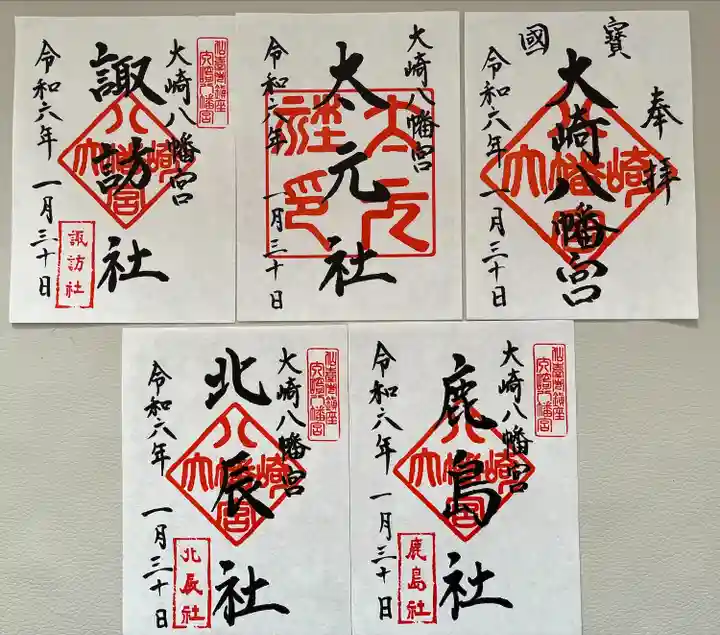 國寶
奉拝
大崎八幡宮
令和六年 一月三十日
大崎八幡宮
太元社
太元社印
令和六年 一月三十日
大崎八幡宮
諏訪社
令和六年 一月三十日
諏訪社
大崎八幡宮
鹿島社
令和六年 一月三十日
鹿島社
大崎八幡宮
北辰社
令和六年 一月三十日
北辰社